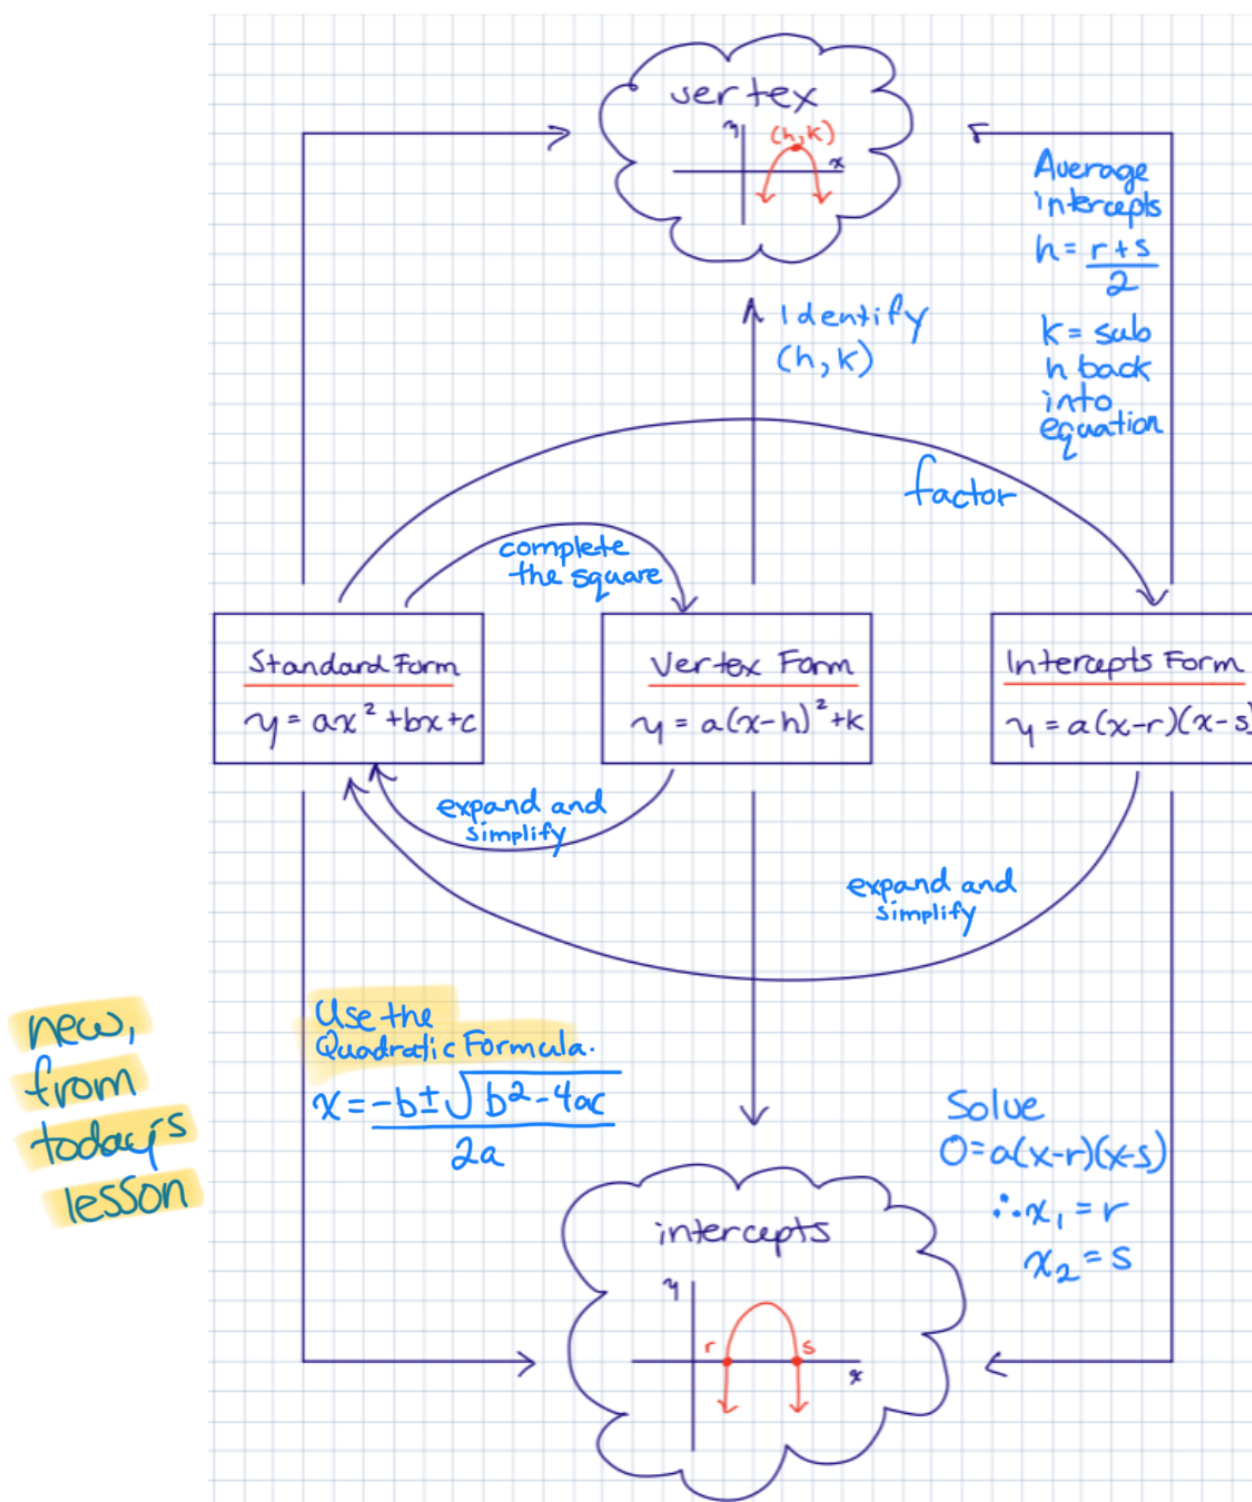 vertex
y
(h,k)
x
Average
intercepts
h = r+s
2
k = sub
h back
into
equation
Identify
(h,k)
factor
complete
the square
Standard Form
y = ax² +bx+c
Vertex Form
y = a(x-h)² +k
Intercepts Form
y = a(x-r)(x-s)
expand and
simplify
expand and
simplify
new,
from
today's
lesson
Use the
Quadratic Formula.
x = -b±√b²-4ac
2a
Solve
0=a(x-r)(x-s)
∴x₁ = r
x₂ = s
intercepts
y
r
s
x